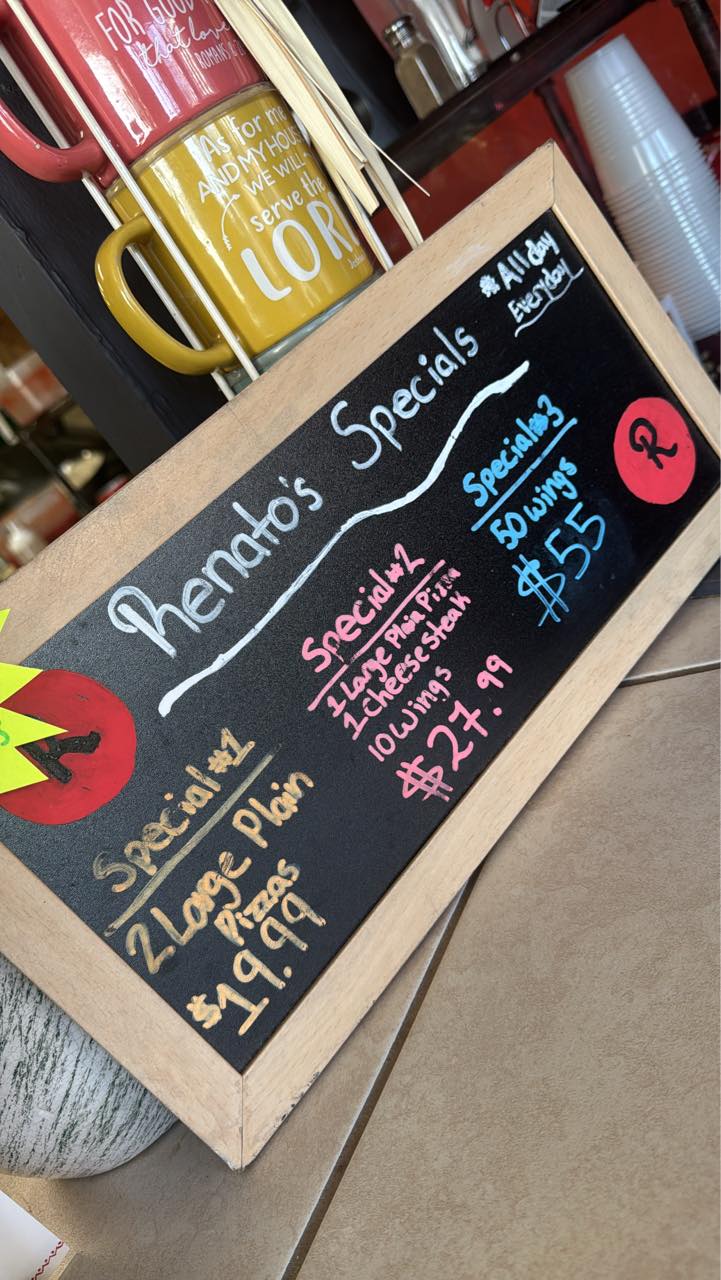 FOR GOOD
that love
ROMANS 8:2
As for me
AND MY HOUSE
WE WILL
serve the
LORD
Renato's Specials
* All day
Everyday
Special #1
2 Large Plain
Pizzas
$19.99
Special #2
1 Large Plain Pizza
1 Cheese Steak
10 Wings
$27.99
Special #3
50 Wings
$55
R
R